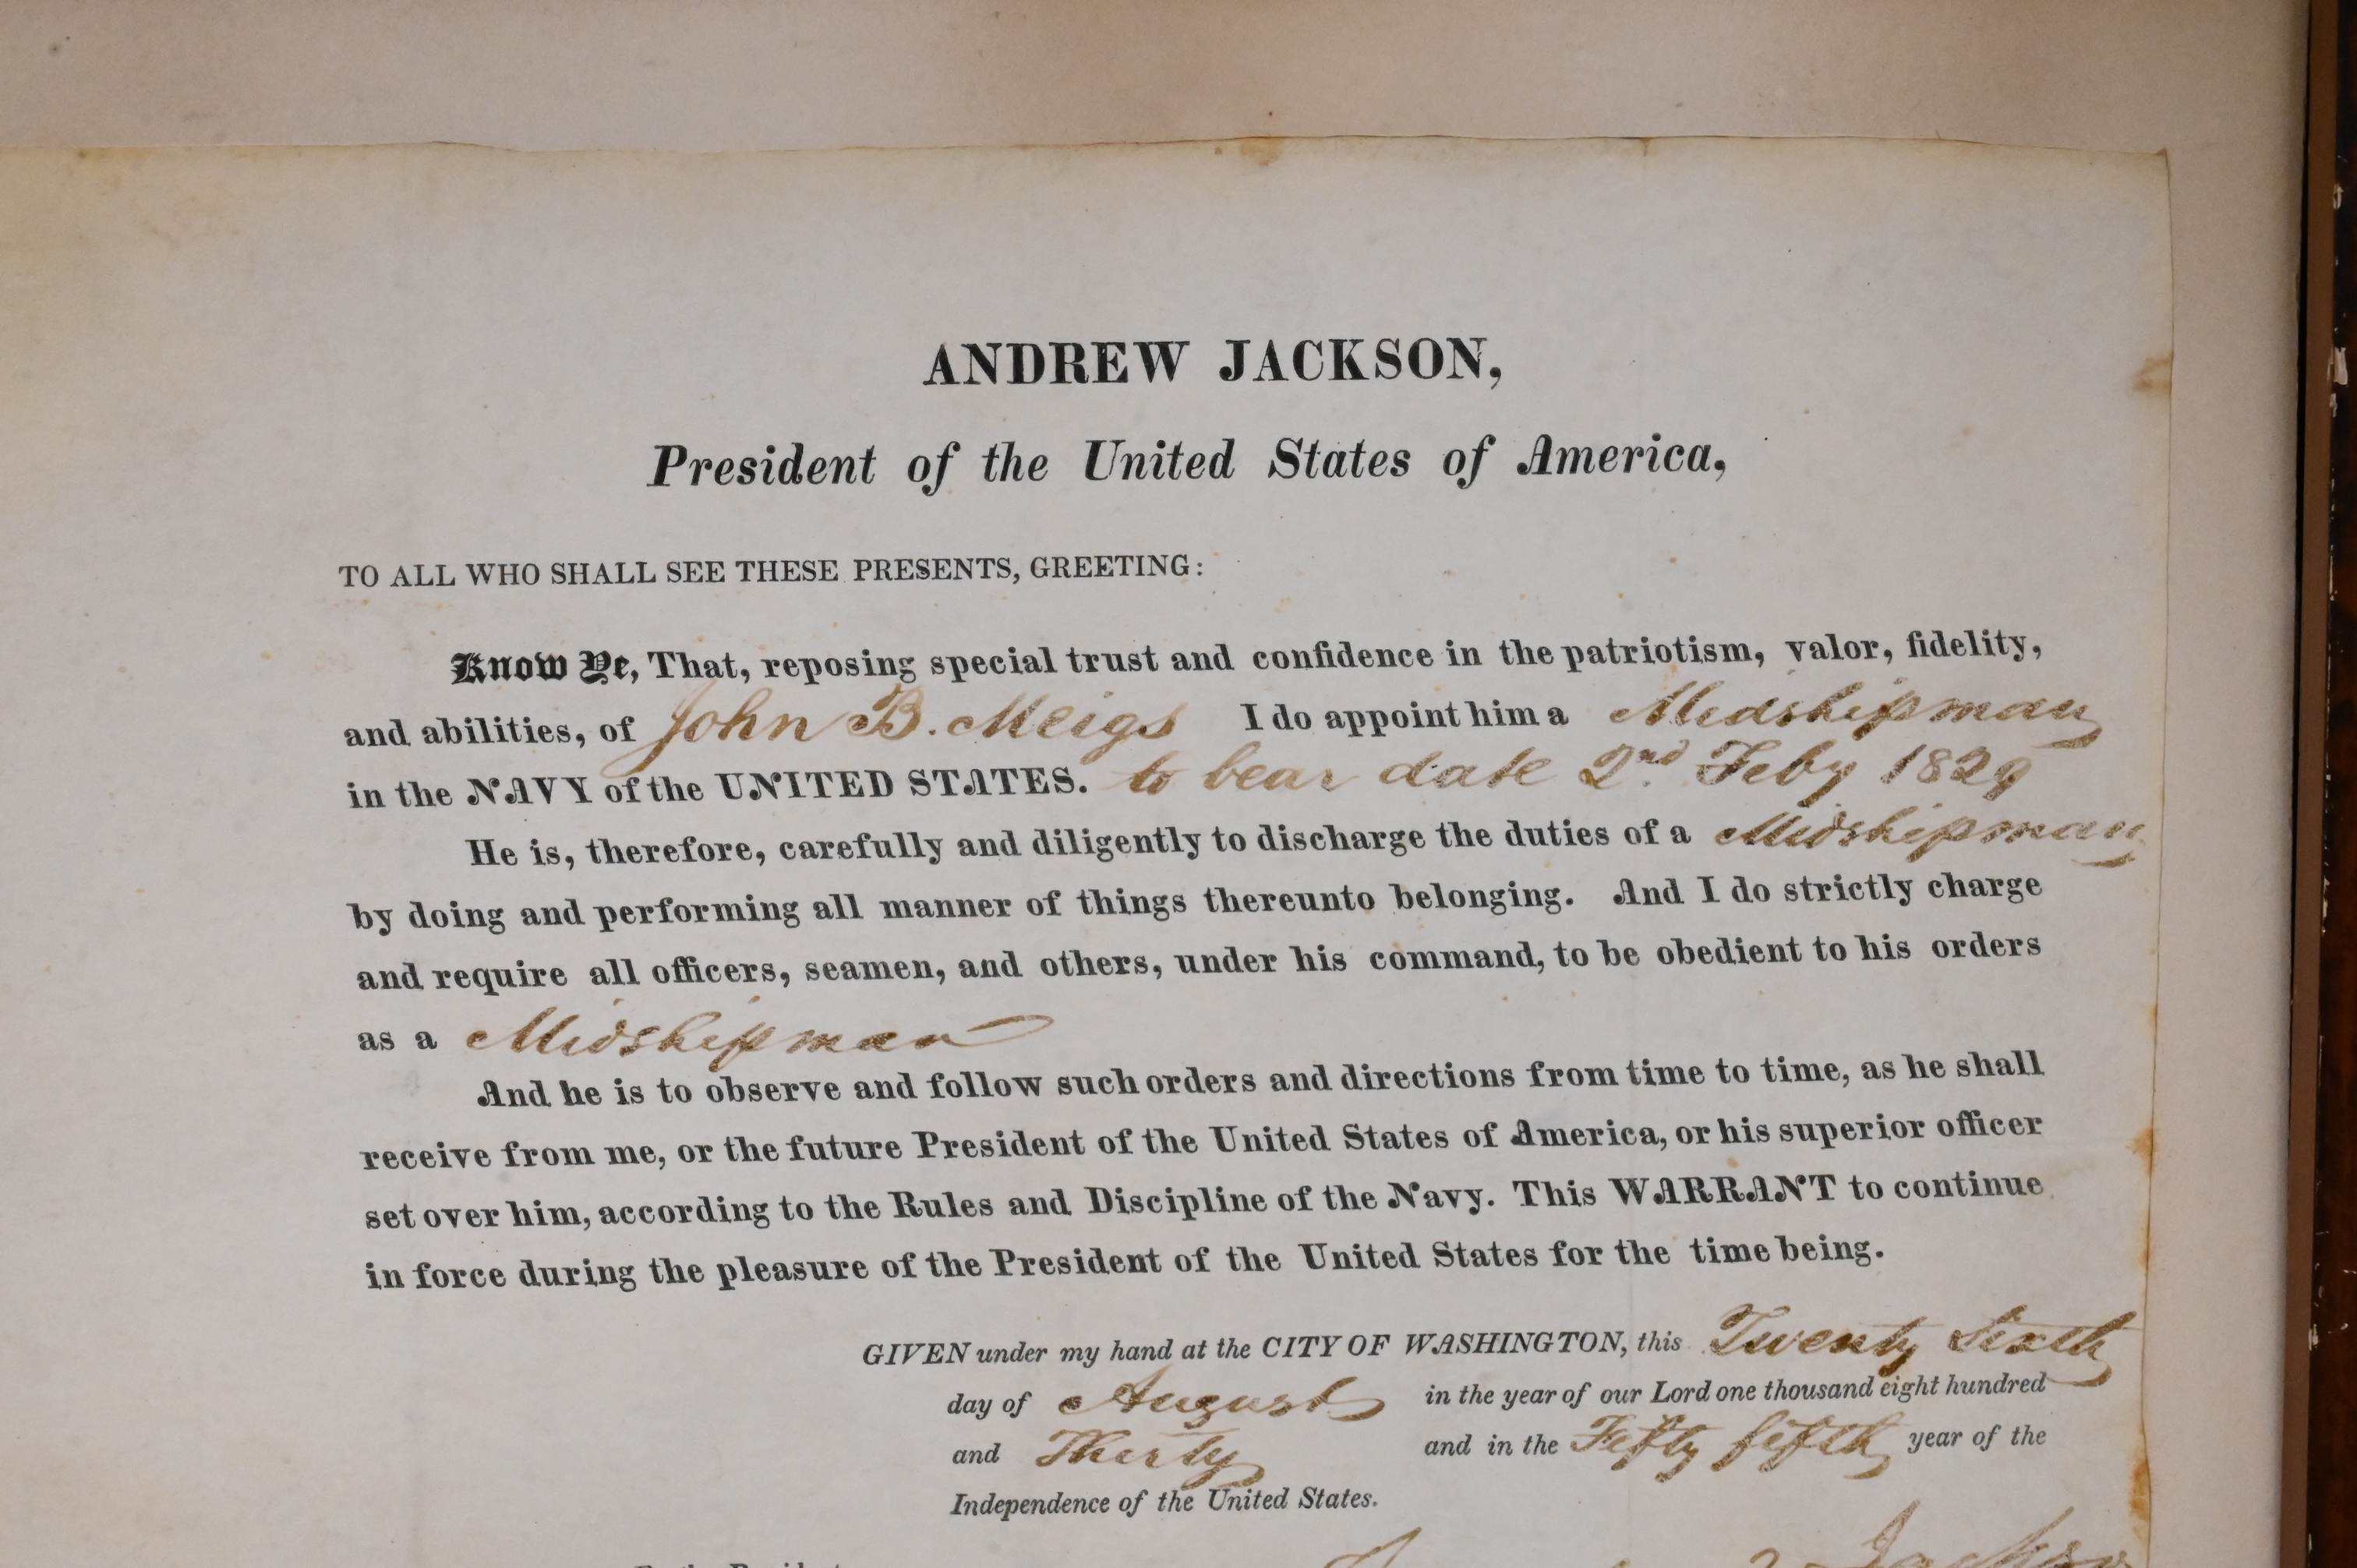 ANDREW JACKSON,
President of the United States of America,
TO ALL WHO SHALL SEE THESE PRESENTS, GREETING:
Know Ye, That, reposing special trust and confidence in the patriotism, valor, fidelity,
and abilities, of John B. Meigs I do appoint him a Midshipman
in the NAVY of the UNITED STATES. to bear date 2nd Feby 1829
He is, therefore, carefully and diligently to discharge the duties of a Midshipman
by doing and performing all manner of things thereunto belonging. And I do strictly charge
and require all officers, seamen, and others, under his command, to be obedient to his orders
as a Midshipman
And he is to observe and follow such orders and directions from time to time, as he shall
receive from me, or the future President of the United States of America, or his superior officer
set over him, according to the Rules and Discipline of the Navy. This WARRANT to continue
in force during the pleasure of the President of the United States for the time being.
GIVEN under my hand at the CITY OF WASHINGTON, this Twenty Sixth
day of August in the year of our Lord one thousand eight hundred
and Thirty and in the Fifty fifth year of the
Independence of the United States.
Jackson